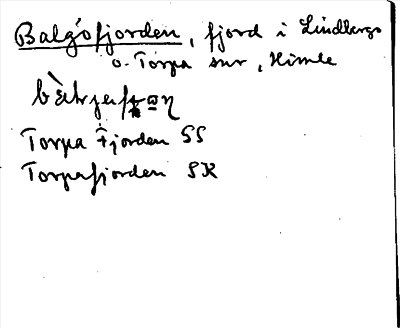 Balgöfjorden, fjord i Lindbergs
o. Torpa snr, Himle
Torpa Fjorden SS
Torpafjorden SK